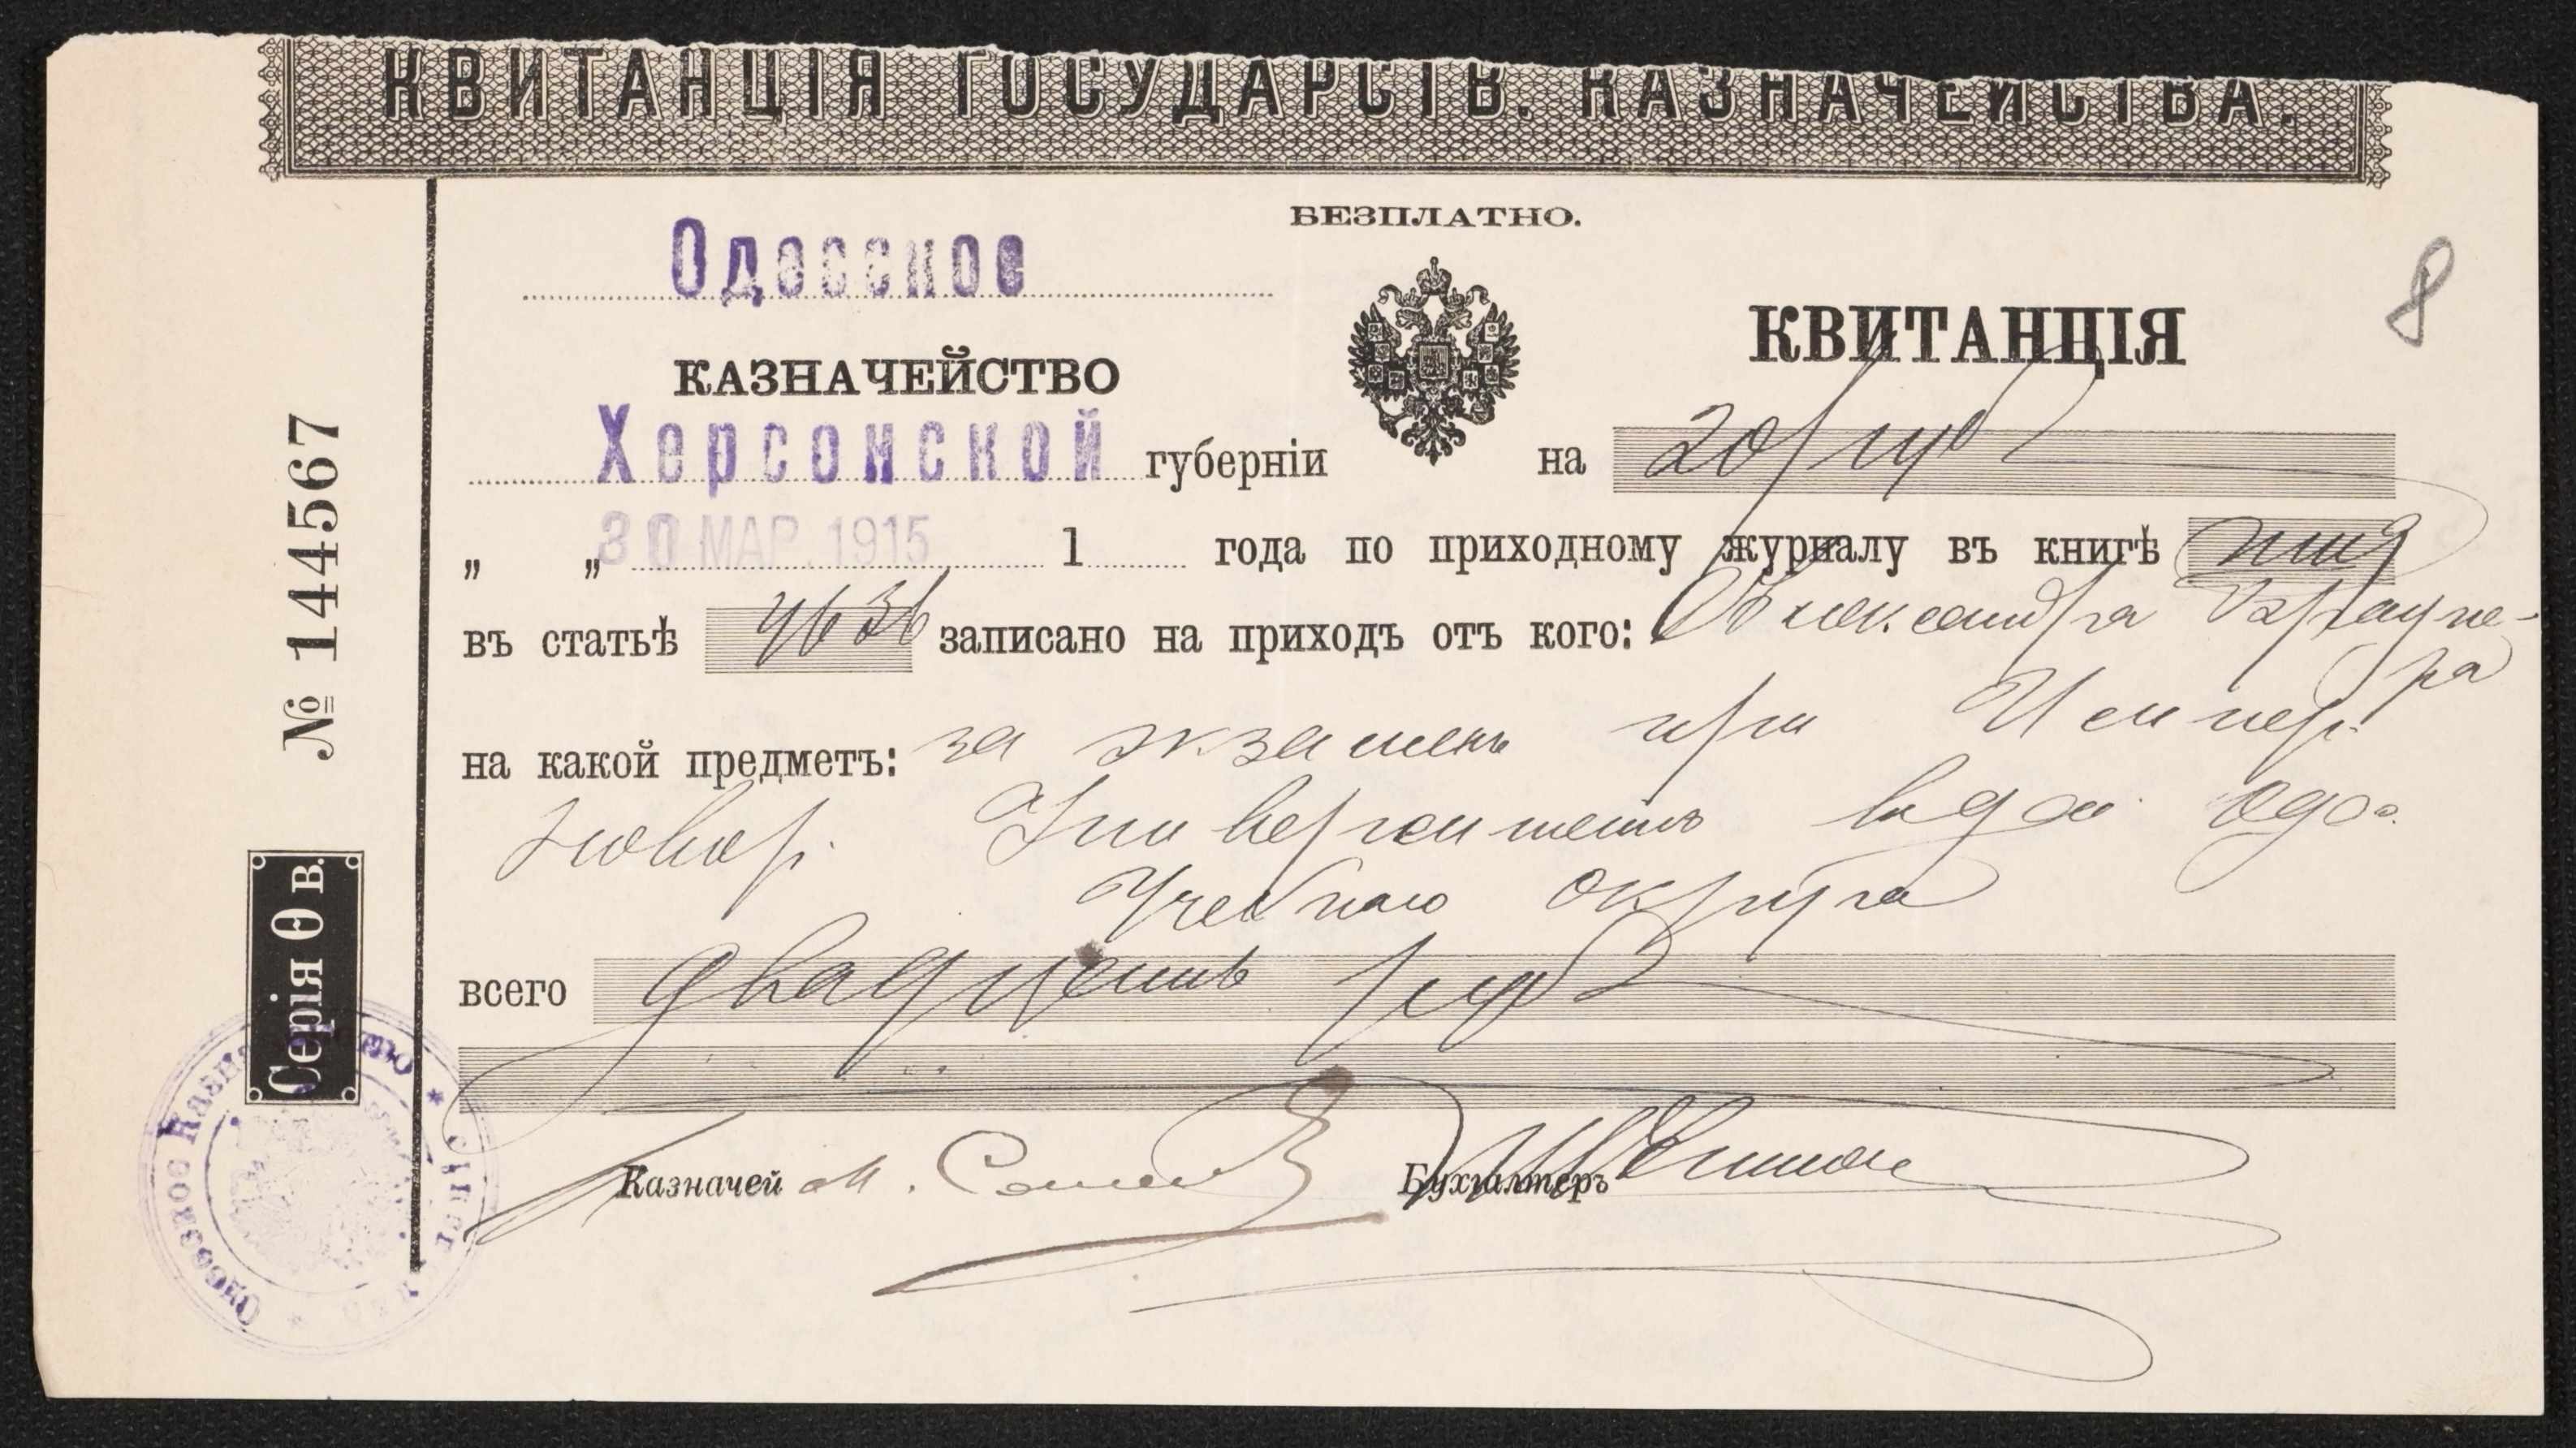 КВИТАНЦІЯ ГОСУДАРСТВ. КАЗНАЧЕЙСТВА.
БЕЗПЛАТНО.
8
Одесское
КАЗНАЧЕЙСТВО
КВИТАНЦІЯ
Херсонской губерніи
на 20 руб
" " 30 МАР. 1915 1 года по приходному журналу въ книгѣ
въ статьѣ 4636 записано на приходъ отъ кого: Александра Браунера
на какой предметъ: за экзаменъ при Импер.
Новор. Университетѣ
Учебнаго округа
всего двадцать руб
Казначей
Бухгалтеръ
№ 144567
Серія Ѳ В.
Одесское Казначейство